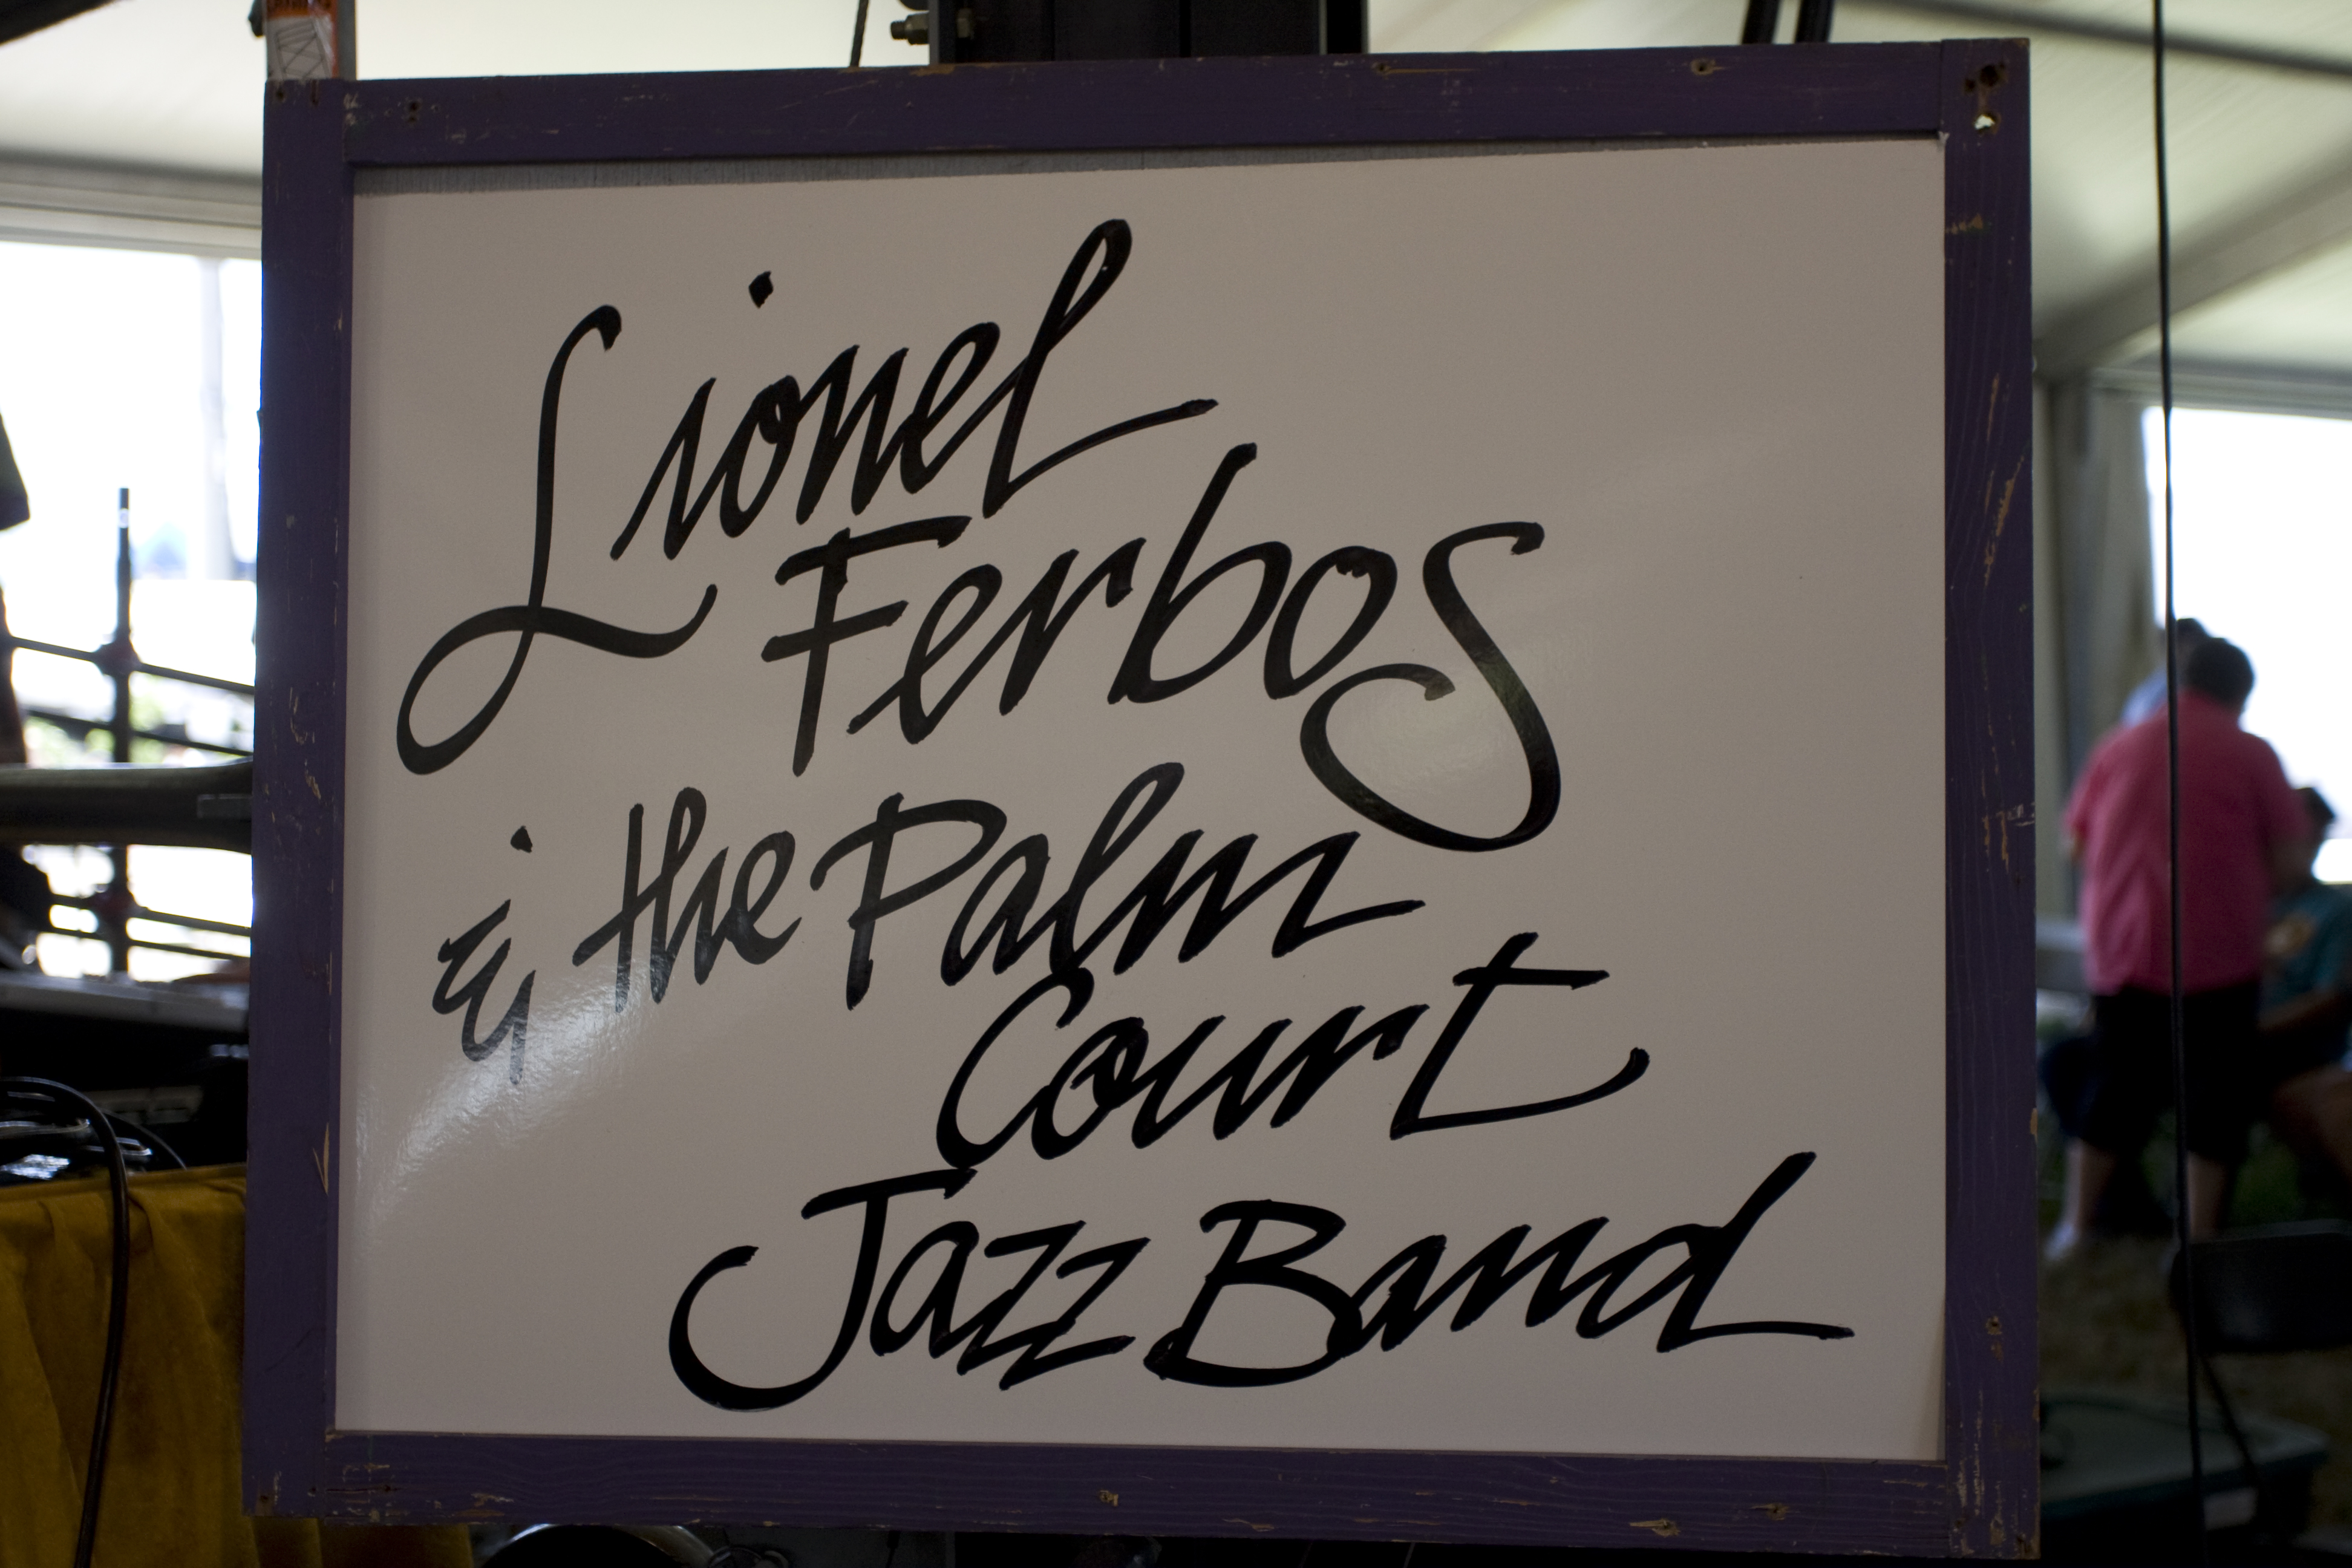 Lionel
Ferbos
& the Palm
Court
Jazz Band